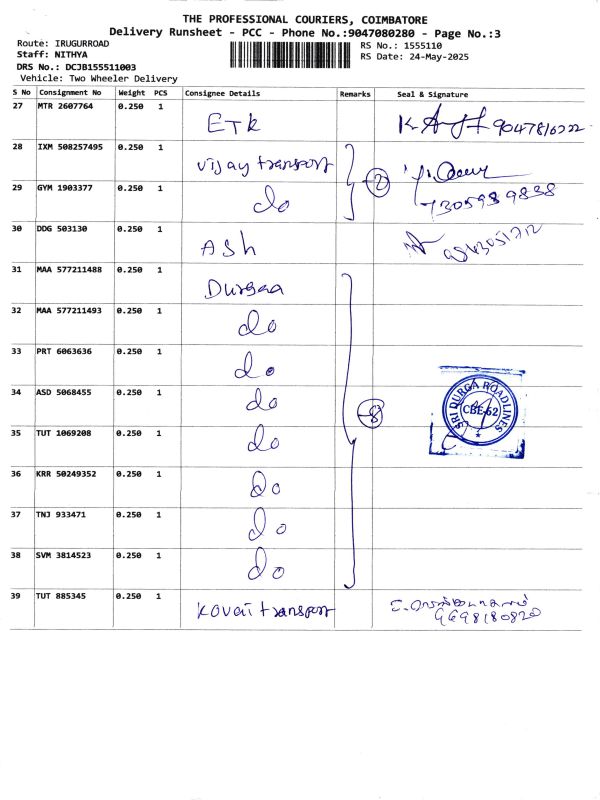 THE PROFESSIONAL COURIERS, COIMBATORE
Delivery Runsheet - PCC - Phone No.:9047080280 - Page No.:3
Route: IRUGURROAD
Staff: NITHYA
DRS No.: DCJB155511003
Vehicle: Two Wheeler Delivery
RS No.: 1555110
RS Date: 24-May-2025
S No Consignment No Weight PCS Consignee Details Remarks Seal & Signature
27 MTR 2607764 0.250 1 ETK
28 IXM 508257495 0.250 1 Vijay transport
29 GYM 1903377 0.250 1 do 2 7305939838
30 DDG 503130 0.250 1 Ash
31 MAA 577211488 0.250 1 Durgaa
32 MAA 577211493 0.250 1 do
33 PRT 6063636 0.250 1 do
34 ASD 5068455 0.250 1 do 8 SRI DURGA ROADLINES CBE-62
35 TUT 1069208 0.250 1 do
36 KRR 50249352 0.250 1 do
37 TNJ 933471 0.250 1 do
38 SVM 3814523 0.250 1 do
39 TUT 885345 0.250 1 Kovai transport 9698180820